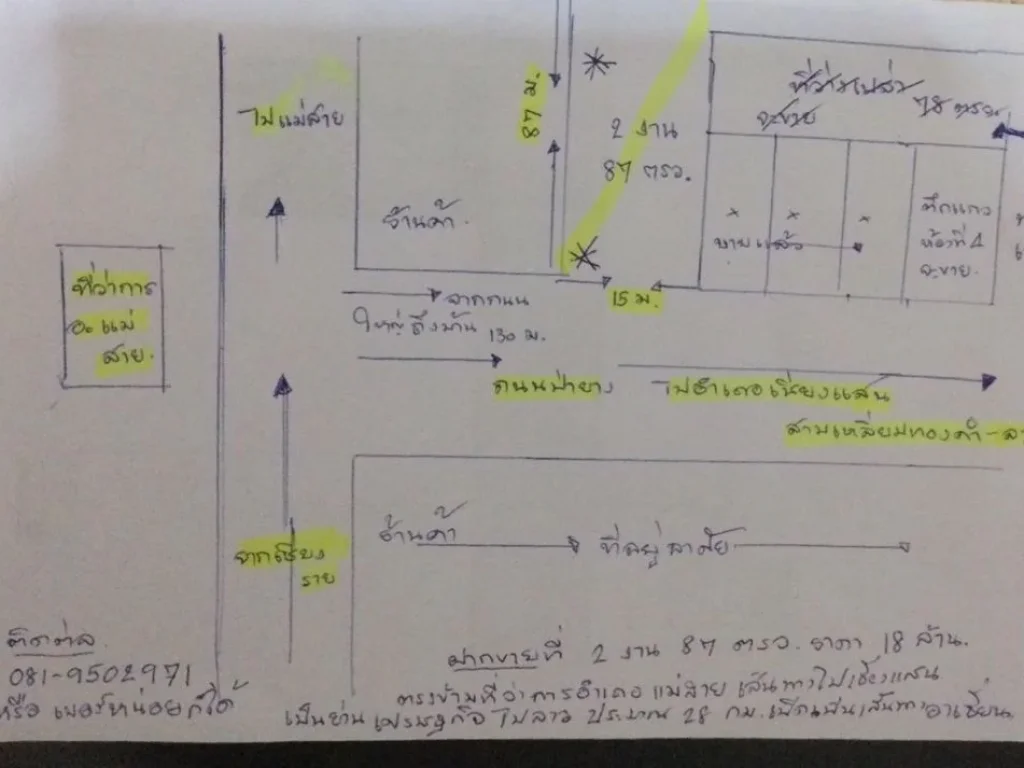 ไปแม่สาย
87 ม.
2 งาน
87 ตรว.
ที่ว่างเปล่า
78 ตรว.
จะขาย
ร้านค้า
ขายแล้ว
ตึกแถว
ห้องที่ 4
จะขาย
ที่ว่าการ
อ. แม่
สาย
15 ม.
จากถนน
ใหญ่ถึงบ้าน 130 ม.
ถนนป่ายาง ไปอำเภอเชียงแสน
สามเหลี่ยมทองคำ-ลา
ร้านค้า ที่อยู่อาศัย
จากเชียง
ราย
ติดต่อ
081-9502971
หรือ เบอร์หน่อยก็ได้
ฝากขายที่ 2 งาน 87 ตรว. ราคา 18 ล้าน.
ตรงข้ามที่ว่าการอำเภอแม่สาย เส้นทางไปเชียงแสน
เป็นย่านเศรษฐกิจ ไปลาว ประมาณ 28 กม. เปิดเป็นเส้นทางอาเซี่ยน